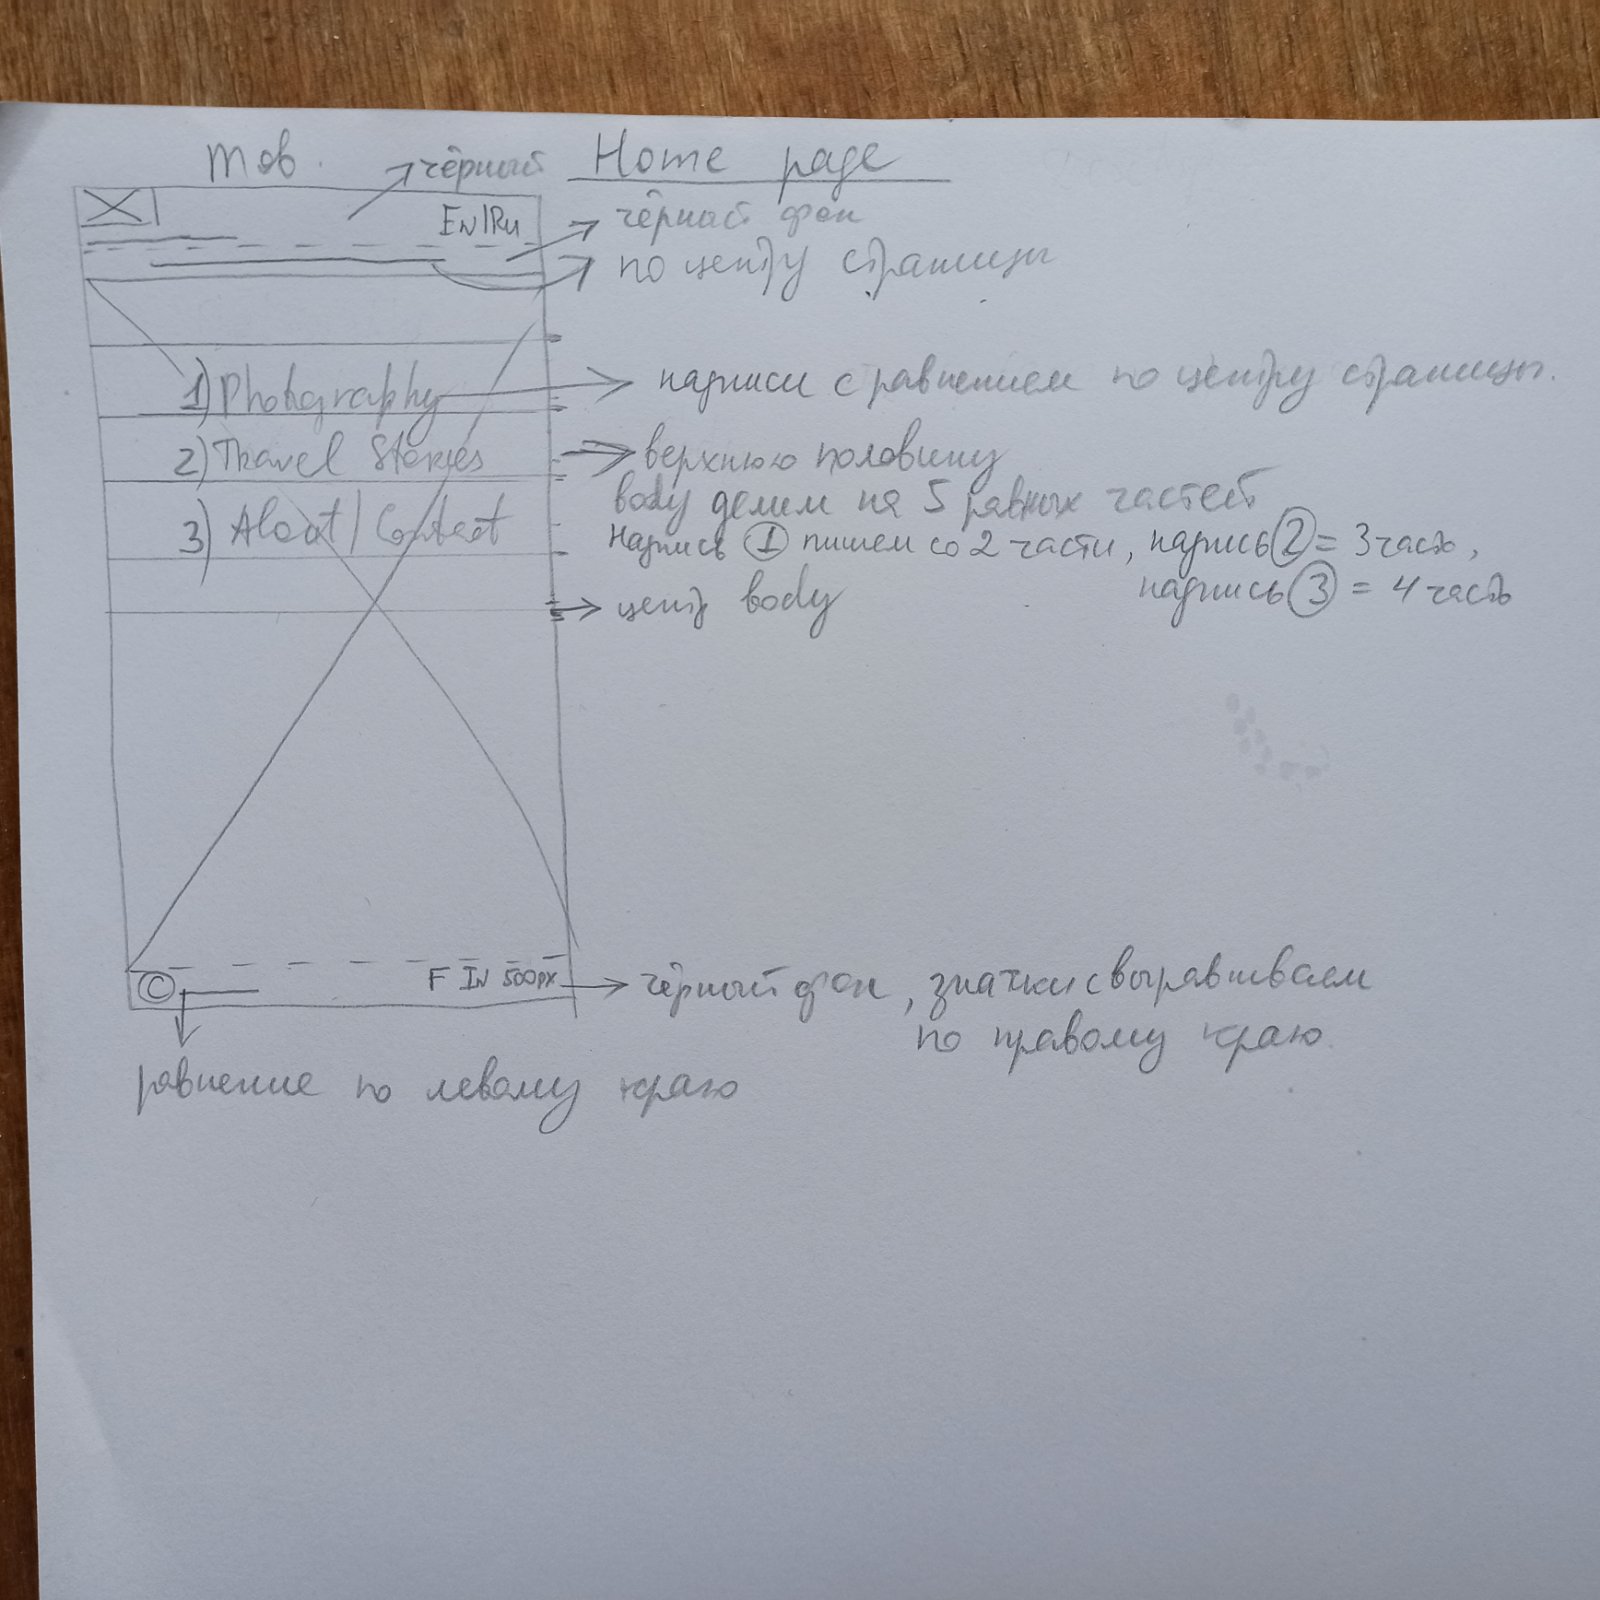 Моб.
чёрный
Home page
En|Ru
чёрный фон
по центру страницы
1) Photography
надписи с равнением по центру страницы.
2) Travel Stories
верхнюю половину
body делим на 5 равных частей
3) About / Contact
Надпись 1 пишем со 2 части, надпись 2 = 3 часть,
надпись 3 = 4 часть
центр body
©
F IN 500px
чёрный фон, значки с выравниваем
по правому краю.
равнение по левому краю